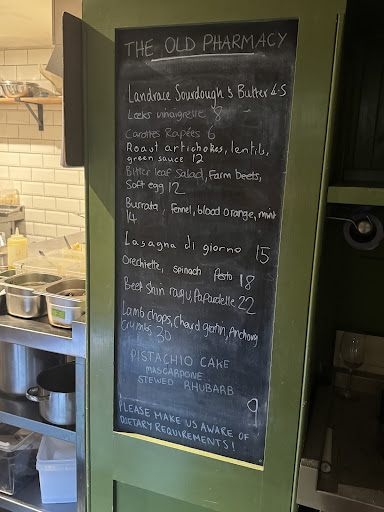 THE OLD PHARMACY
Landrace Sourdough & Butter 4.5
Leeks vinaigrette 8
Carottes Rapées 6
Roast artichokes, lentils,
green sauce 12
Bitter leaf Salad, Farm beets,
Soft egg 12
Burrata, Fennel, blood orange, mint
14
Lasagna di giorno 15
Orechiette, Spinach Pesto 18
Beef Shin ragu, Papardelle 22
Lamb chops, Chard gratin, Anchovy
Crumbs 30
PISTACHIO CAKE
MASCARPONE
STEWED RHUBARB
9
PLEASE MAKE US AWARE OF
DIETARY REQUIREMENTS!